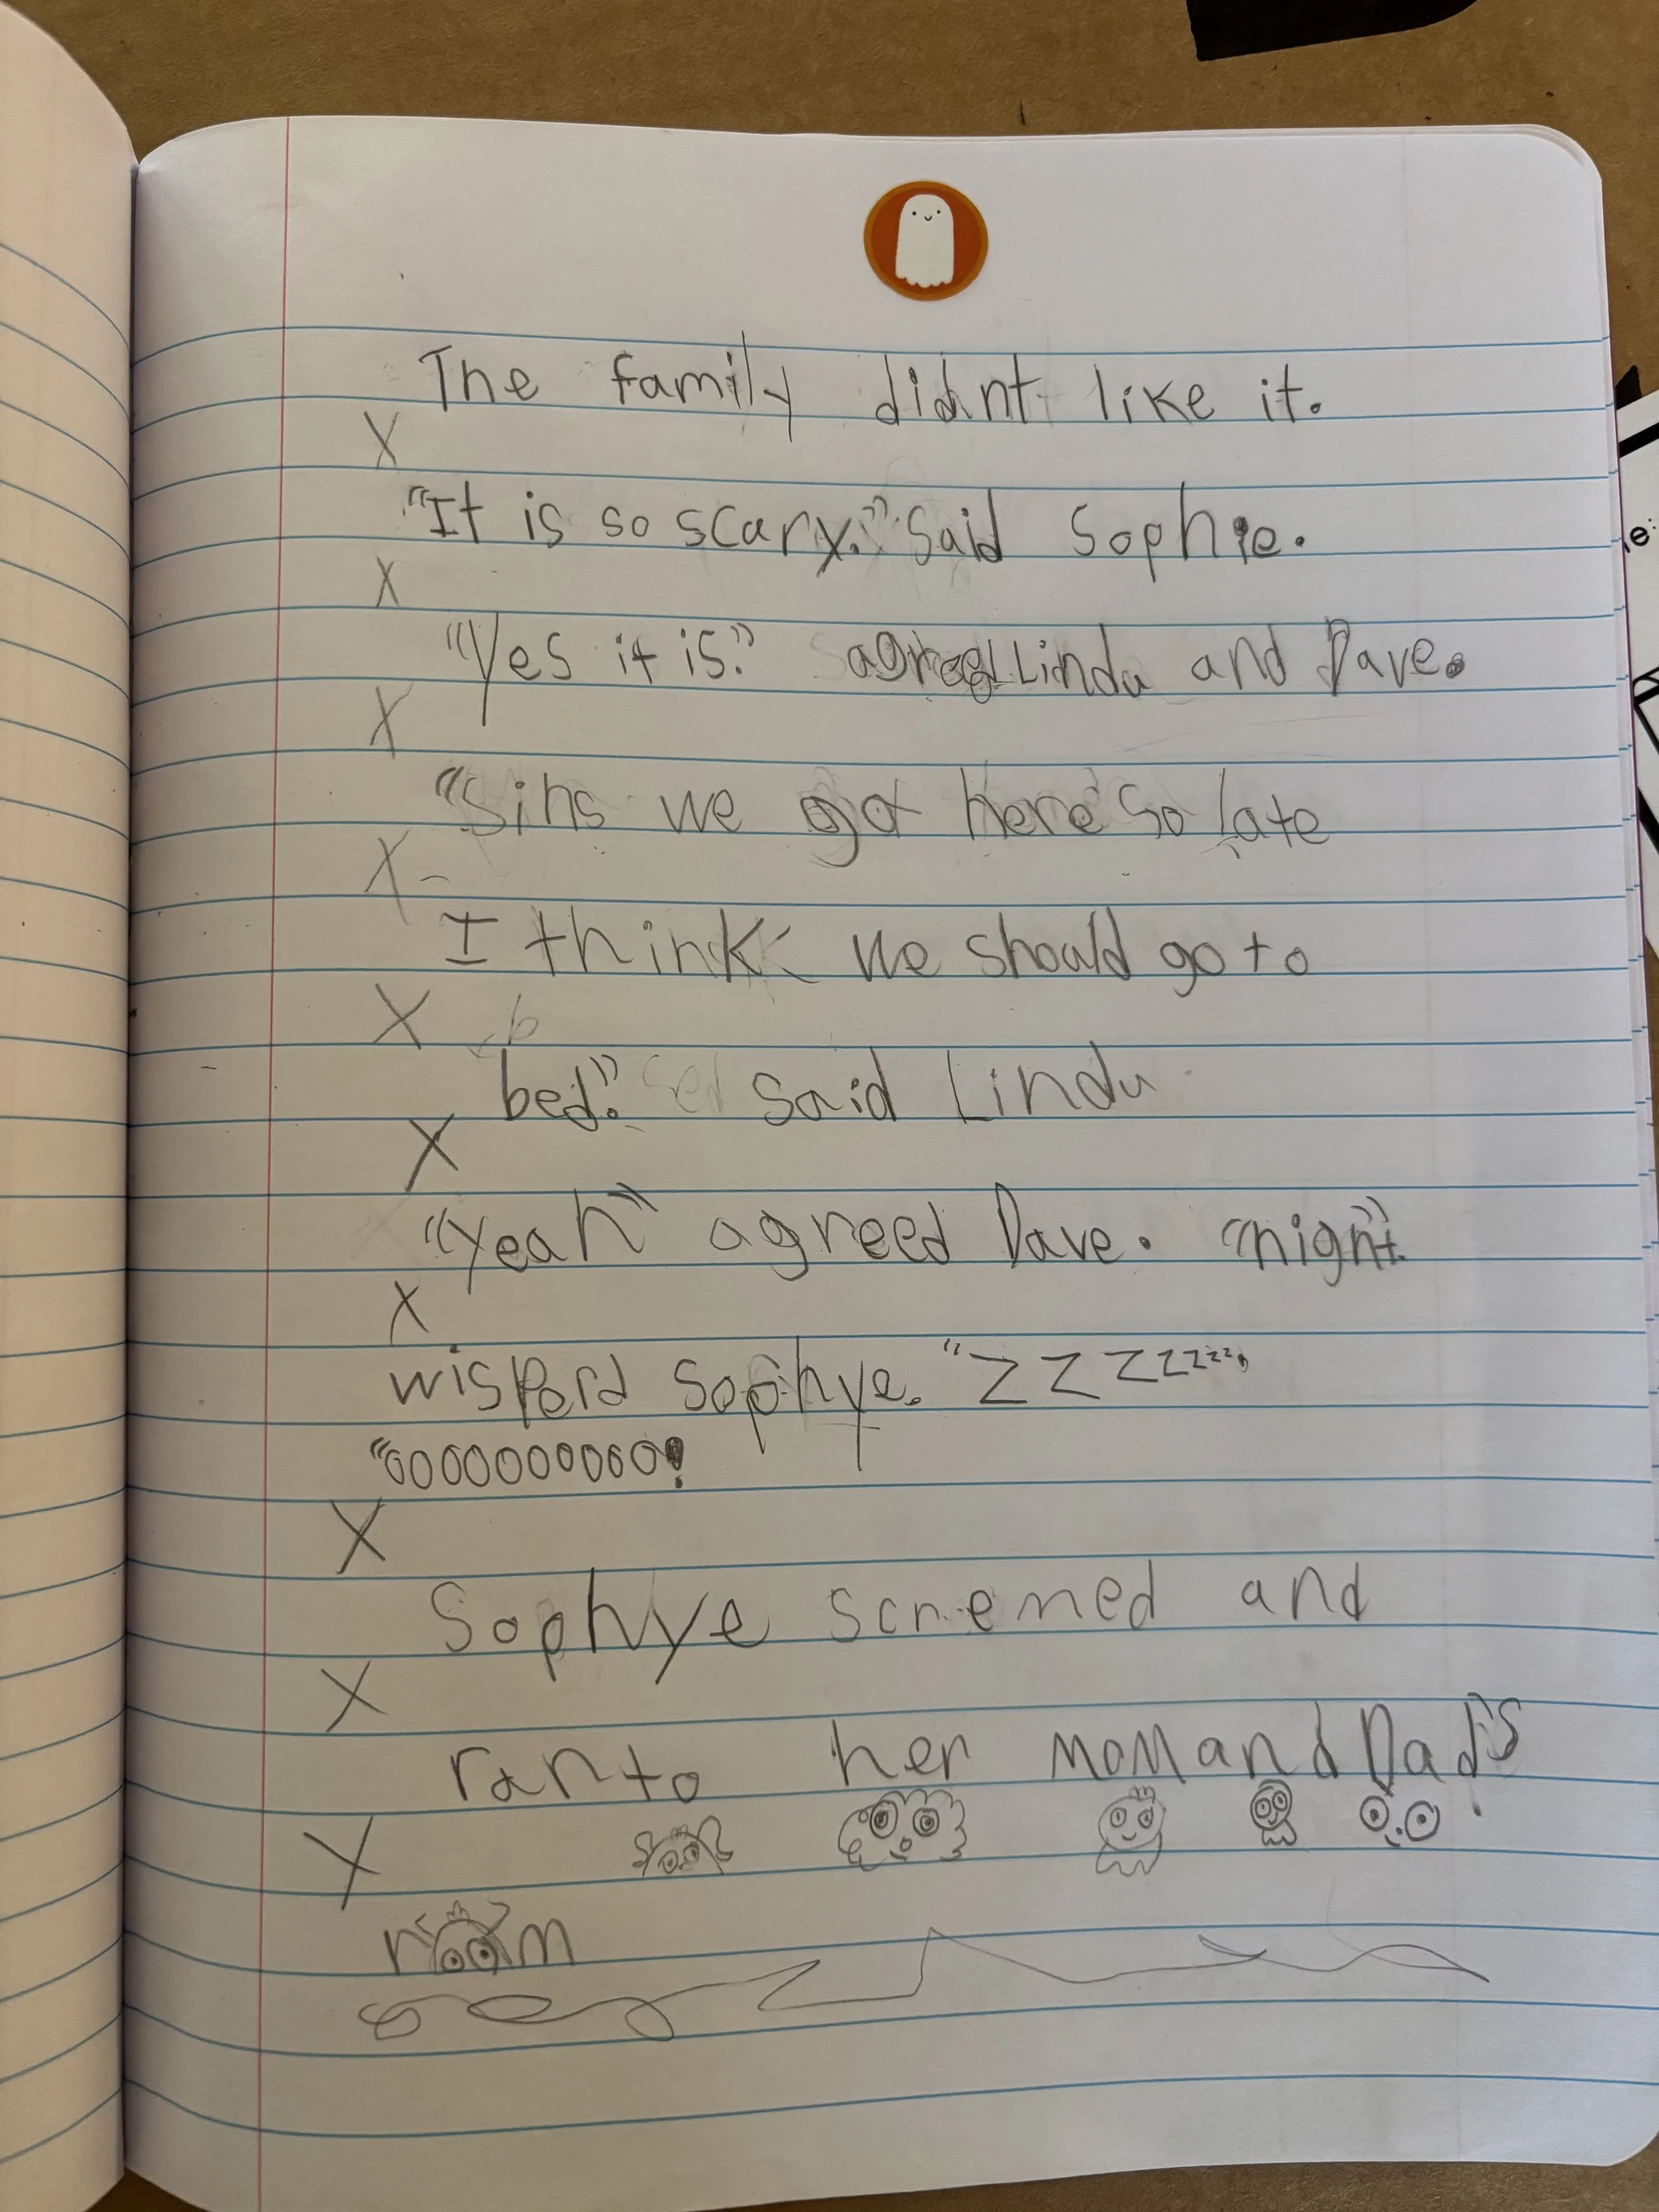 The family didnt like it.
X
"It is so scary." Said Sophie.
X
"Yes it is." agreed Linda and Dave.
X
"Sins we got here so late
X
I think we should go to
X b
bed." said Linda
X
"Yeah" agreed Dave. "night"
X
wisperd Sophye. "ZZZZZZZZZ,
"OOOOOOOOOO!
X
Sophye scremed and
X
ran to her mom and Dad's
X
room
e: